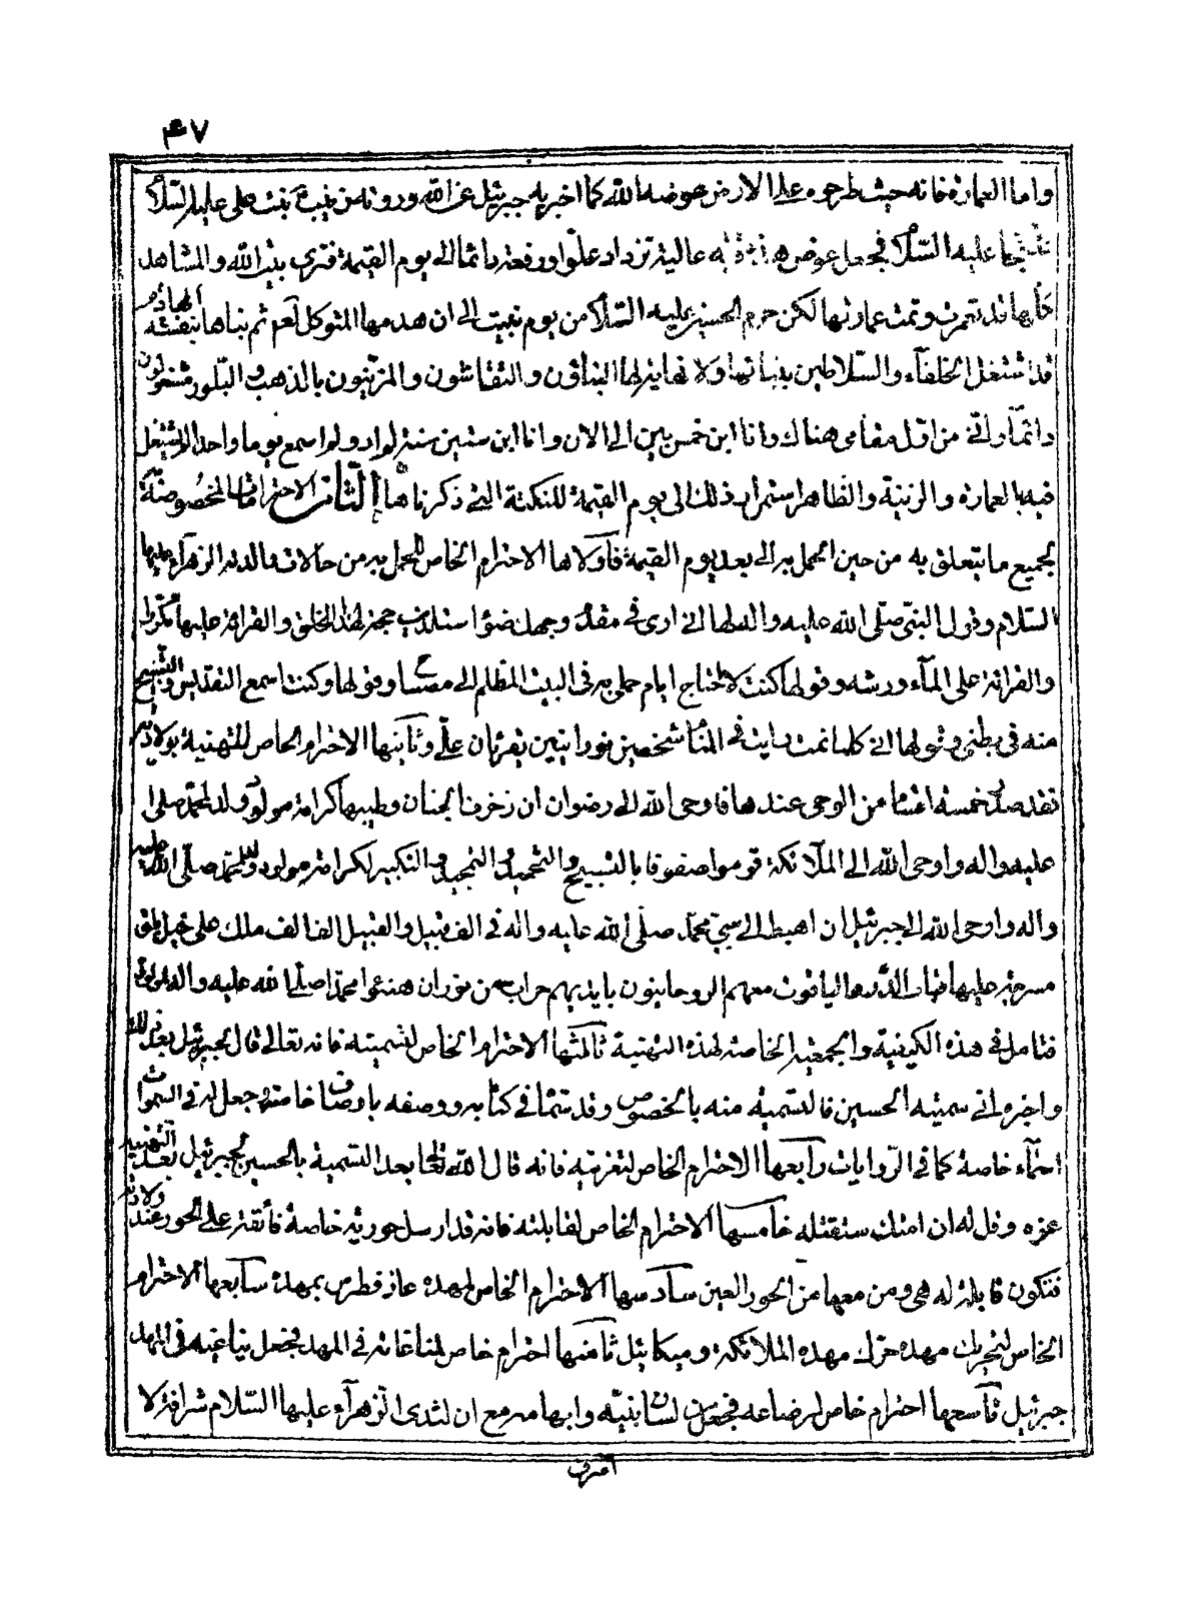 ٤٧
واما العمارة فانه حيث طرحوه على الارض عوضه الله كما اخبر به جبرئيل عن الله وروته زينب بنت على عليه السلام
عليه السلام فجعل عوض هذا عالية تزداد علوا ورفعة دائما الى يوم القيمة فترى بيت الله والمشاهد
قد تعمرت وتمت عمارتها لكن حرم الحسين عليه السلام من يوم بنيت الى ان هدمها المتوكل ثم بناها بنفسه الهادم
قد اشتغل الخلفاء والسلاطين ببنائها ولا نهاية لها البناؤن والنقاشون والمزينون بالذهب والبلور مشغولون
دائما وانى من اول مقامى هناك وانا ابن خمس سنين الى الان وانا ابن ستين سنة لم ار ولم اسمع يوما واحدا لم يشتغل
فيه بالعمارة والزينة والظاهر استمرار ذلك الى يوم القيمة للنكتة التى ذكرناها الثامن الاحترامات المخصوصة
لجميع ما يتعلق به من حين الحمل به الى بعد يوم القيمة فاولاها الاحترام الخاص للحمل به من حالات والدته الزهراء عليها
السلام وقول النبى صلى الله عليه واله لها انى ارى فى مقدم وجهك ضوءا ستلدين حجة لهذا الخلق والقرائة عليها مكررا
والقرائة على الماء ورشه وقولها كنت لا احتاج ايام حملى به فى البيت المظلم الى مصباح وقولها وكنت اسمع التقديس والتسبيح
منه فى بطنى وقولها انى كلما نمت رايت فى المنام شخصين نورانيين يقرئان على وثانيها الاحترام الخاص للتهنية بولادته
فقد صدر خمسة اقسام من الوحى عندها فاوحى الله الى رضوان ان زخرف الجنان وطيبها كرامة لمولود ولد لمحمد صلى الله
عليه واله واوحى الله الى الملائكة قوموا صفوفا بالتسبيح والتحميد والتمجيد والتكبير لكرامة مولود ولد لمحمد صلى الله عليه
واله واوحى الله الى جبرئيل ان اهبط الى نبيى محمد صلى الله عليه واله فى الف قبيل والقبيل الف الف ملك على خيل بلق
مسرجة عليها قباب الدر والياقوت معهم الروحانيون بايديهم حراب من نور ان هنئوا محمدا صلى الله عليه واله بمولوده
فتامل فى هذه الكيفية والجمعية الخاصة لهذه التهنية ثالثها الاحترام الخاص لتسميته فانه تعالى قال لجبرئيل بعد ذلك
واخبره انى سميته الحسين فالتسمية منه بالخصوص وقد سماه فى كتابه ووصفه باوصاف خاصة وجعل له فى السموات
اسماء خاصة كما فى الروايات رابعها الاحترام الخاص لتعزيته فانه قال الله تعالى بعد التسمية بالحسين لجبرئيل بعد التهنية
عزه وقل له ان امتك ستقتله خامسها الاحترام الخاص لقابلته فانه قد ارسل حورية خاصة فائقة على الحور عند ولادته
فتكون قابلة له هى ومن معها من الحور العين سادسها الاحترام الخاص لمهده عاذ فطرس بمهده سابعها الاحترام
الخاص لتحريك مهده حرك مهده الملائكة وميكائيل ثامنها احترام خاص لمناغاته فى المهد فجعل يناغيه فى المهد
جبرئيل تاسعها احترام خاص لرضاعه فجعل لسان نبيه وابهامه مع ان لثدى الزهراء عليها السلام شرافة لا
اشرف